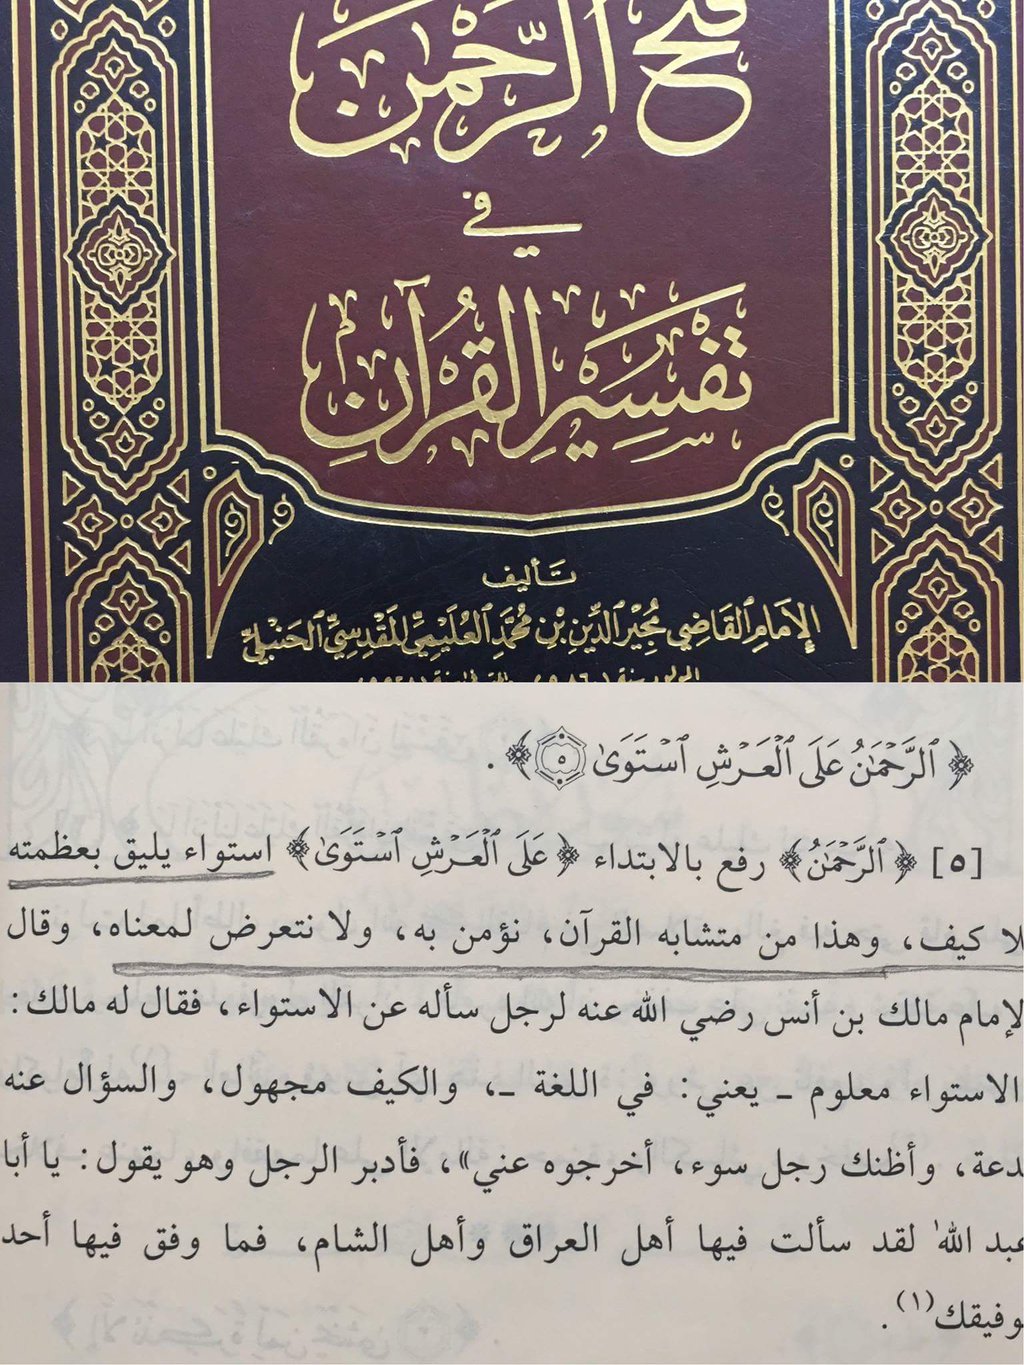 فتح الرحمن
في
تفسير القرآن
تأليف
الإمام القاضي مجير الدين بن محمد العليمي المقدسي الحنبلي
﴿ ٱلرَّحْمَٰنُ عَلَى ٱلْعَرْشِ ٱسْتَوَىٰ ٥ ﴾ .
[٥] ﴿ ٱلرَّحْمَٰنُ ﴾ رفع بالابتداء ﴿ عَلَى ٱلْعَرْشِ ٱسْتَوَىٰ ﴾ استواء يليق بعظمته
لا كيف، وهذا من متشابه القرآن، نؤمن به، ولا نتعرض لمعناه، وقال
لإمام مالك بن أنس رضي الله عنه لرجل سأله عن الاستواء، فقال له مالك:
الاستواء معلوم ـ يعني: في اللغة ـ، والكيف مجهول، والسؤال عنه
دعة، وأظنك رجل سوء، أخرجوه عني»، فأدبر الرجل وهو يقول: يا أبا
عبد الله لقد سألت فيها أهل العراق وأهل الشام، فما وفق فيها أحد
وفيقك(١) .